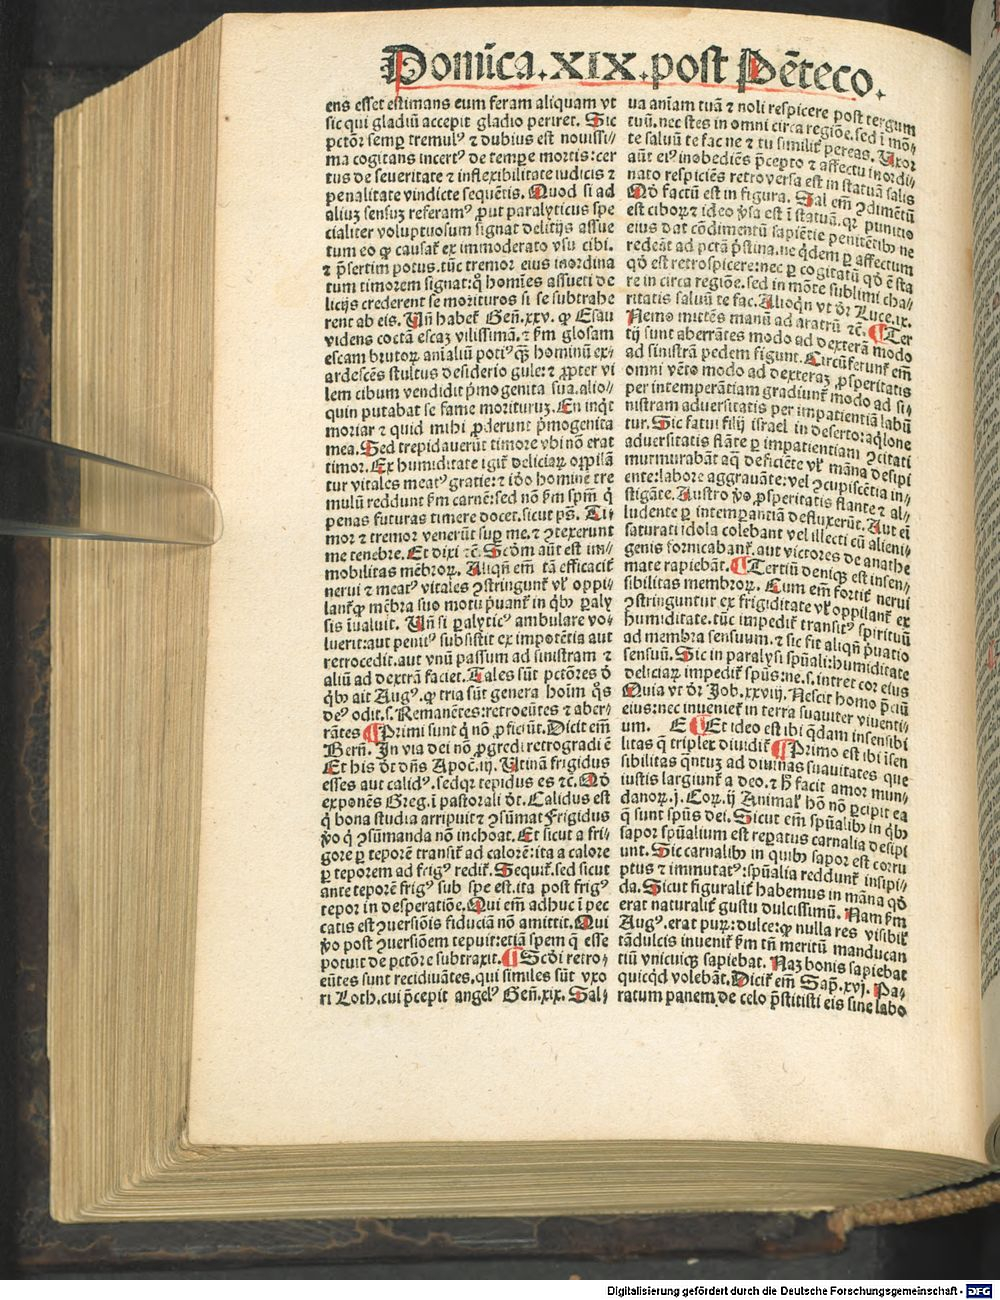 Domīca.XIX.post Pēteco.
ens esset estimans eum feram aliquam vt
sic qui gladiū accepit gladio periret. Sic
pctōr semꝑ tremulꝰ ⁊ dubius est nouissi⸗
ma cogitans incertꝰ de tempe mortis: cer
tus de seueritate ⁊ inflexibilitate iudicis ⁊
penalitate vindicte sequētis. Quod si ad
aliuꝫ sensuꝫ referamꝰ ꝓut paralyticus spe
cialiter voluptuosum signat delitijs assue
tum eo ꝙ causat᷑ ex immoderato vsu cibi.
⁊ p̄sertim potus. tūc tremor eius inordina
tum timorem signat: q̄ homīes assueti de
licijs crederent se morituros si se subtrahe
rent ab eis. Uñ habet᷑ Geñ.xxv. ꝙ Esau
videns coctā escaꝫ vilissimā. ⁊ ẜm glosam
escam brutoꝝ aīaliū potiꝰ qᷓꝫ hominū ex⸗
ardescēs stultus desiderio gule: ⁊ ꝓpter vi
lem cibum vendidit p̄mogenita sua. alio⸗
quin putabat se fame morituruꝫ. En inqͥt
moriar ⁊ quid mihi ꝓderunt p̄mogenita
mea. Sed trepidauerūt timore vbi nō erat
timor. Ex humiditate igit᷑ deliciaꝝ oppilā
tur vitales meatꝰ gratie: ⁊ iō homine tre
mulū reddunt ẜm carnē: sed nō ẜm spm̄ q̄
penas futuras timere docet. sicut pš. Ti⸗
mor ⁊ tremor venerūt suꝑ me. ⁊ ꝯtexerunt
me tenebre. Et dixi ⁊č. Scōm aūt est im⸗
mobilitas mēbroꝝ. Aliqñ em̄ tā efficacit᷑
nerui ⁊ meatꝰ vitales ꝯstringunt᷑ vl᷑ oppi⸗
lant᷑ ꝙ mēbra suo motu p̄uant᷑ in qͥbꝫ ꝑaly
sis īualuit. Uñ si ꝑalyticꝰ ambulare vo⸗
luerit: aut penitꝰ subsistit ex impotētia aut
retrocedit. aut vnū passum ad sinistram ⁊
aliū ad dextrā faciet. Tales sūt pctōres ō
qͥbꝫ ait Augꝰ. ꝙ tria sūt genera hoīm qͦs
deꝰ odit. s. Remanētes: retroeūtes ⁊ aber⸗
rātes ¶Primi sunt q̄ nō ꝓficiūt. Dicit em̄
Berñ. In via dei nō ꝓgredi retrogradi ē
Et his ōt dn̄s Apoč.iij. Utinā frigidus
esses aut calidꝰ. sedqꝛ tepidus es ⁊č. Qō
exponēs Greg. ī pastorali ōt. Calidus est
q̄ bona studia arripuit ⁊ ꝯsūmat Frigidus
ꝟo q̄ ꝯsūmanda nō inchoat. Et sicut a fri⸗
gore ꝑ teporē transit᷑ ad calorē: ita a calore
ꝑ teporem ad frigꝰ redit᷑. Sequit᷑. sed sicut
ante teporē frigꝰ sub spe est. ita post frigꝰ
tepor in desperatiōe. Qui em̄ adhuc ī pec
catis est ꝯuersiōis fiduciā nō amittit. Qui
ꝟo post ꝯuersiōem tepuit: etiā spem q̄ esse
potuit de pctōre subtraxit. ¶Scōi retro⸗
eūtes sunt recidiuātes. qui similes sūt vxo
ri Loth. cui p̄cepit angelꝰ Geñ.xix. Sal⸗
ua aīam tuā ⁊ noli respicere post tergum
tuū. nec stes in omni circa regiōe. sed ī mō⸗
te saluū te fac ne ⁊ tu similit᷑ pereas. Uxor
aūt eiꝰ inobediēs p̄cepto ⁊ affectu inordi⸗
nato respiciēs retro versa est in statuā salis
Qō factū est in figura. Sal em̄ ꝯdimētū
est ciboꝝ ⁊ ideo ꝟsa est ī statuā. qꝛ punitio
eius dat cōdimentū sapiētie penitētibꝫ ne
redeāt ad pctā p̄stina. ne qͥdem ꝑ affectum
qō est retrospicere: nec ꝑ cogitatū qō ē sta
re in circa regiōe. sed in mōte sublimi cha⸗
ritatis saluū te fac. Alioqͥn vt ōr Luce.ix.
Nemo mittēs manū ad aratrū ⁊č. ¶Ter
tij sunt aberrātes modo ad dexterā modo
ad sinistrā pedem figunt. Circūferunt᷑ em̄
omni vēto modo ad dexteraꝫ ꝓsperitatis
per intemperātiam gradiunt᷑ modo ad si⸗
nistram aduersitatis per impatientiā labū
tur. Sic fatui filij israel in deserto: aqͥlone
aduersitatis flāte ꝑ impatientiam ꝯcitati
murmurabāt aq̄ deficiēte vl᷑ māna desipi
ente: labore aggrauāte: vel ꝯcupiscētia in⸗
stigāte. Austro ꝟo ꝓsperitatis flante ⁊ al⸗
ludente ꝑ intemꝑantiā defluxerūt. Aut em̄
saturati idola colebant vel illecti cū alieni⸗
genis fornicabant᷑. aut victores de anathe
mate rapiebāt. ¶Tertiū deniqꝫ est insen⸗
sibilitas membroꝝ. Cum em̄ fortit᷑ nerui
ꝯstringuntur ex frigiditate vl᷑ oppilant᷑ ex
humiditate. tūc impedit᷑ transitꝰ spirituū
ad membra sensuum. ⁊ sic fit aliqñ p̄uatio
sensuū. Sic in paralysi spūali: humiditate
deliciaꝝ impedit᷑ spūs: ne. s. intret cor eius
Quia vt ōr Job.xxviij. Nescit homo p̄ciū
eius: nec inueniet᷑ in terra suauiter viuenti⸗
um. E ¶Et ideo est ibi qͥdam insensibi
litas q̄ triplex diuidit᷑ ¶Primo est ibi īsen
sibilitas qͣntuꝫ ad diuinas suauitates que
iustis largiunt᷑ a deo. ⁊ h̄ facit amor mun⸗
danoꝝ.j.Coꝝ.ij Animal᷑ hō nō ꝑcipit ea
q̄ sunt spūs dei. Sicut em̄ spūalibꝫ in qͥbꝫ
sapor spūalium est reꝑatus carnalia desipi
unt. Sic carnalibꝫ in quibꝫ sapor est corru
ptus ⁊ immutatꝰ: spūalia reddunt᷑ insipi⸗
da. Sicut figuralit᷑ habemus in māna qō
erat naturalit᷑ gustu dulcissimū. Nam ẜm
Augꝰ. erat puꝝ: dulce: ꝙ nulla res visibil᷑
tādulcis inuenit᷑ ẜm tñ meritū manducan
tiū vnicuiqꝫ sapiebat. Naꝫ bonis sapiebat
quicqͥd volebāt. Dicit᷑ em̄ Sap̄.xvj. Pa⸗
ratum panem de celo p̄stitisti eis sine labo
Digitalisierung gefördert durch die Deutsche Forschungsgemeinschaft - DFG